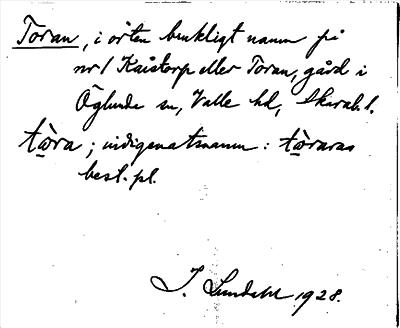 Toran, i orten brukligt namn på
nr 1 Kaistorp eller Toran, gård i
Öglunda sn, Valle hd, Skarab. l.
tòra; indigenatsnamn: tòraras
best. pl.
J. Lundahl 1928.